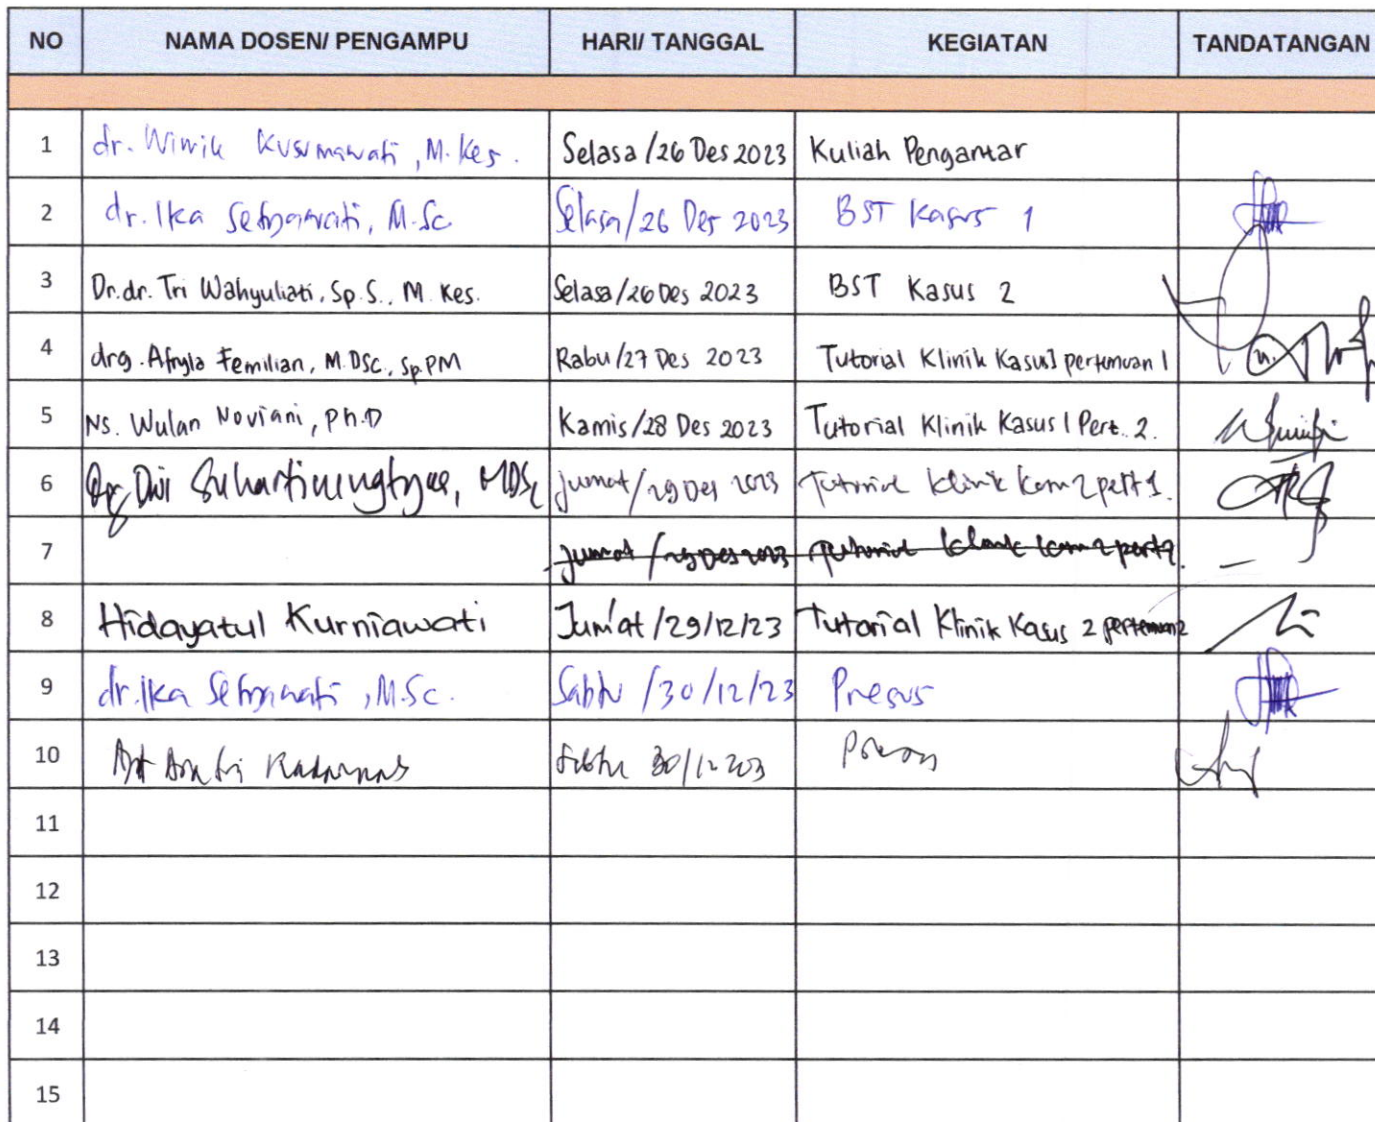 NO NAMA DOSEN/ PENGAMPU HARI/ TANGGAL KEGIATAN TANDATANGAN
1 dr. Wiwik Kusumawati, M.Kes. Selasa/26 Des 2023 Kuliah Pengantar
2 dr. Ika Setyawati, M.Sc Selasa/26 Des 2023 BST Kasus 1
3 Dr.dr. Tri Wahyuliati, Sp.S., M.Kes. Selasa/26 Des 2023 BST Kasus 2
4 drg. Afryla Femilian, M.DSc., Sp.PM Rabu/27 Des 2023 Tutorial Klinik Kasus 1 pertemuan 1
5 Ns. Wulan Noviani, Ph.D Kamis/28 Des 2023 Tutorial Klinik Kasus 1 Pert. 2.
6 Drg Dwi Suhartiningtyas, MDSc Jumat/29 Des 2023 Tutorial Klinik Kasus 2 pert 1.
7 Jumat/29 Des 2023 Tutorial Klinik Kasus 2 pert 2.
8 Hidayatul Kurniawati Jum'at/29/12/23 Tutorial Klinik Kasus 2 pertemuan 2
9 dr. Ika Setyawati, M.Sc. Sabtu/30/12/23 Presus
10 Sabtu 30/12 2023
11
12
13
14
15